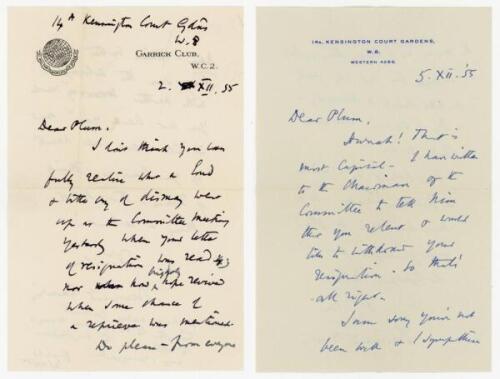 14A Kensington Court Gdns
W.8
GARRICK CLUB,
W.C.2.
2. XII. 55
Dear Plum,
I don't think you can
fully realise what a loud
& bitter cry of dismay went
up at the Committee meeting
yesterday when your letter
of resignation was read
nor how highly hope revived
when some chance of
a reprieve was mentioned.
Do please – from everyone
14A, KENSINGTON COURT GARDENS,
W.8.
WESTERN
5. XII. '55
Dear Plum,
Hurrah! That is
most capital – I have written
to the Chairman of the
Committee to tell him
that you relent & would
like to withdraw your
resignation. So that's
all right –
I am sorry you've not
been well & I sympathise